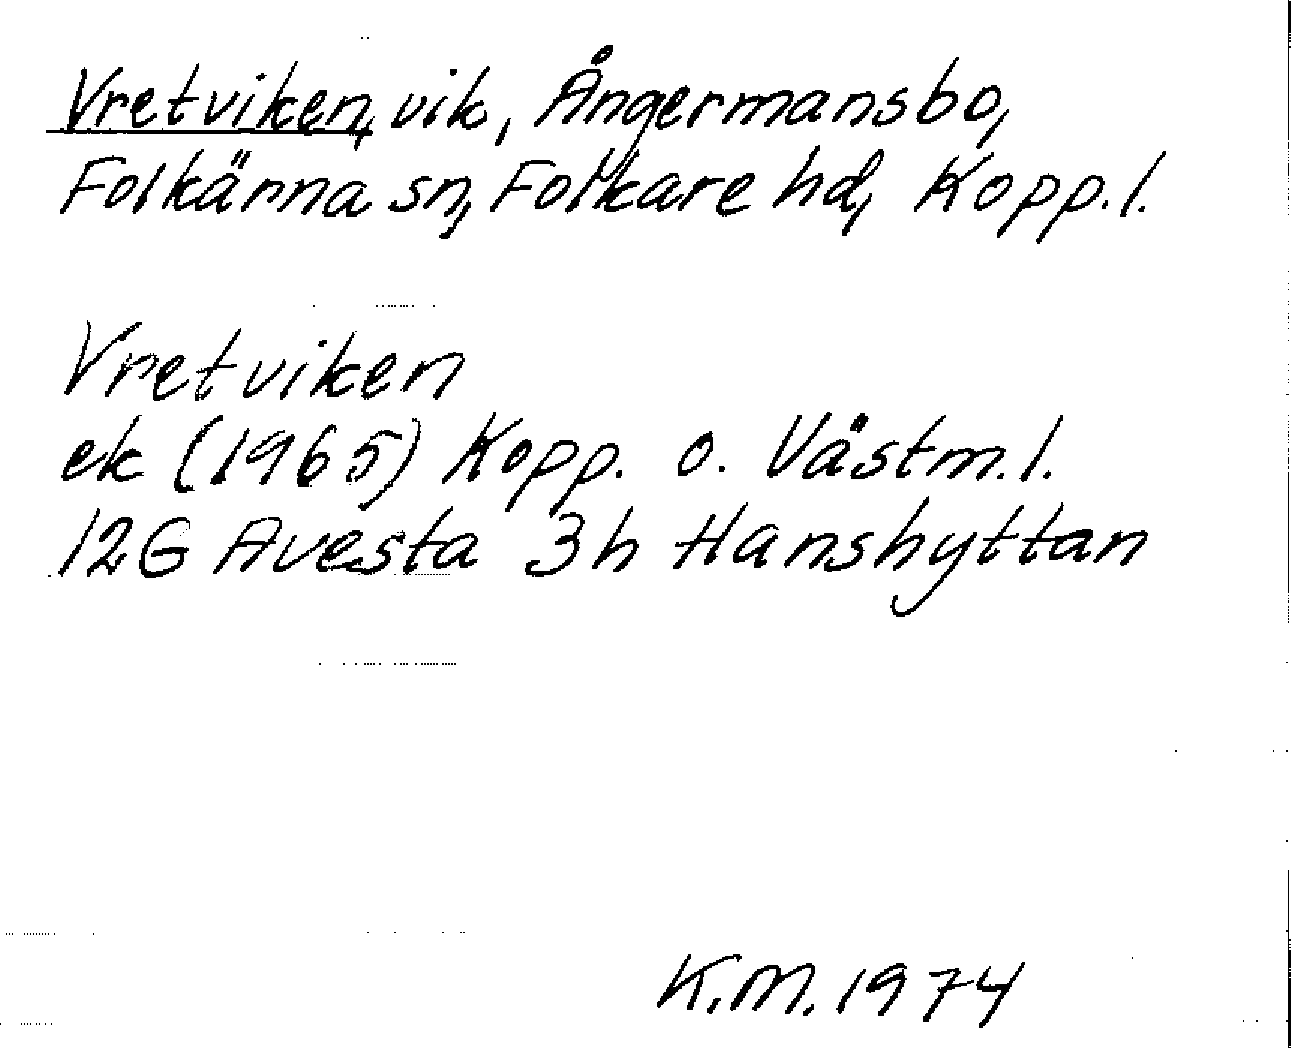 Vretviken, vik, Ångermansbo,
Folkärna sn, Folkare hd, Kopp. l.
Vretviken
ek (1965) Kopp. o. Västm. l.
12G Avesta 3h Hanshyttan
K.M. 1974